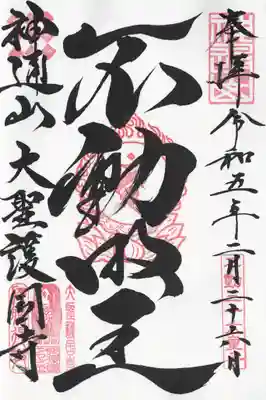 奉拝 令和五年二月二十六日
不動明王
神通山 大聖護国寺